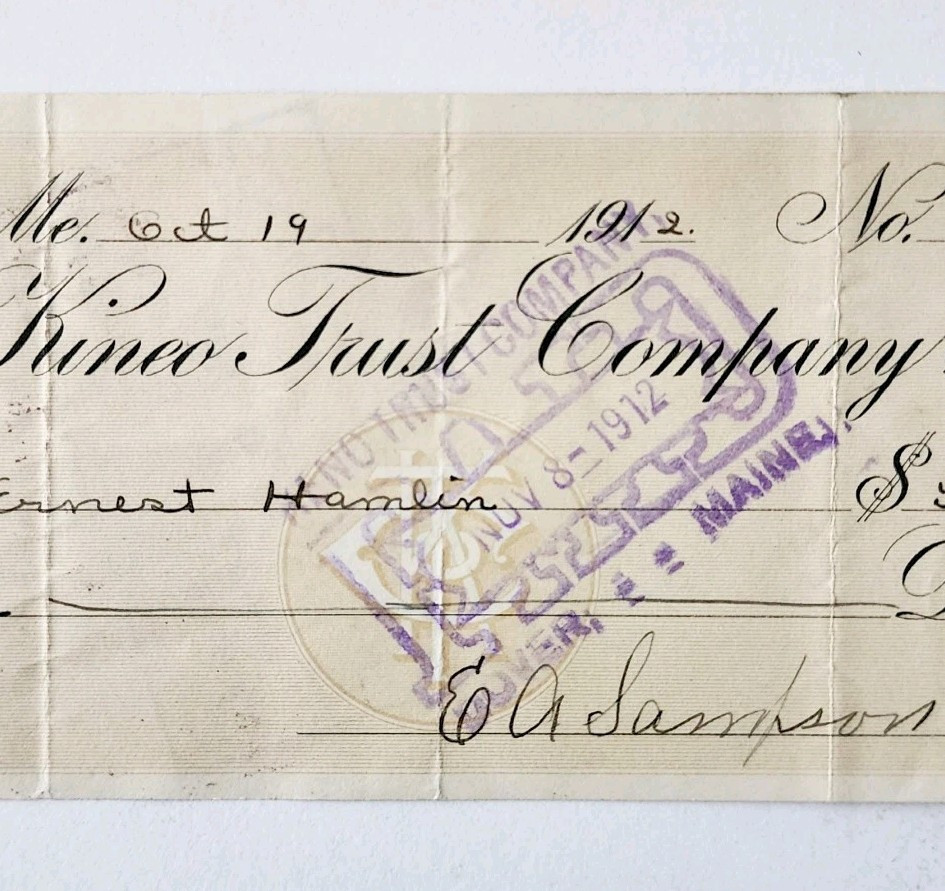 Me. Oct 19 1912. No.
Kineo Trust Company
Ernest Hamlin $
E A Sampson
TRUST COMPANY,
PAID
NOV 8-1912
DOVER, MAINE.